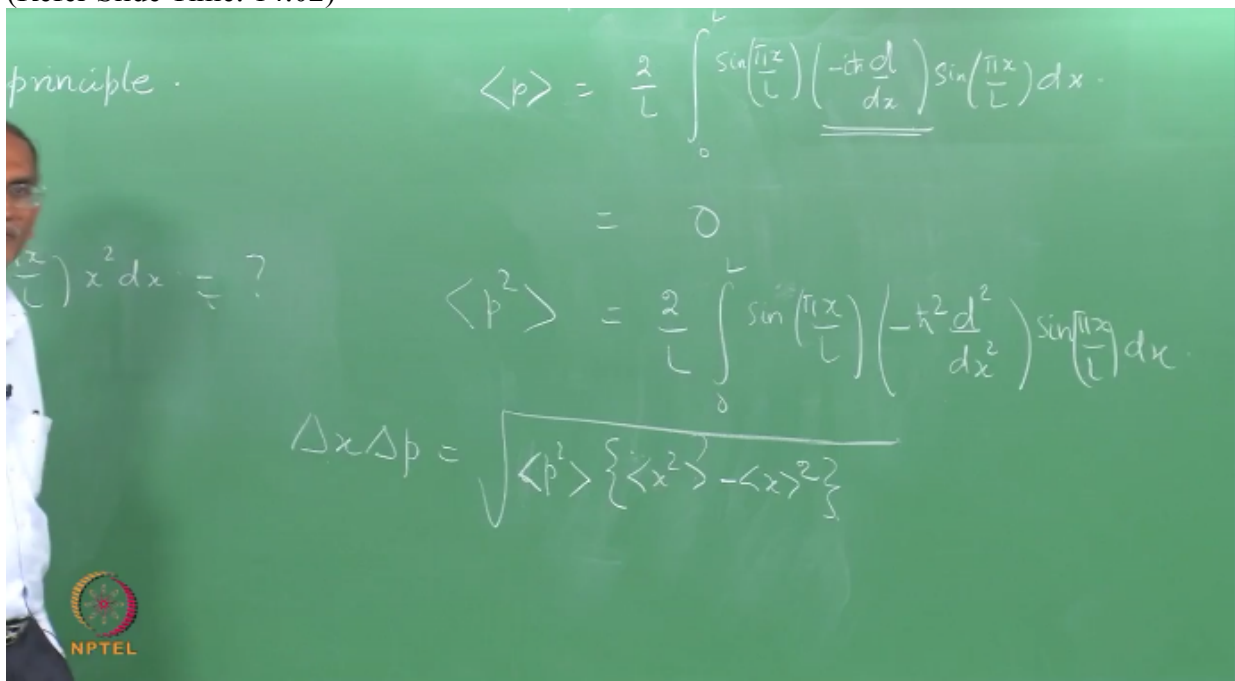 principle.
<p> = 2/L ∫₀ᴸ sin(πx/L) (-iħ d/dx) sin(πx/L) dx.
= 0
x/L) x² dx = ?
<p²> = 2/L ∫₀ᴸ sin(πx/L) (-ħ² d²/dx²) sin(πx/L) dx.
Δx Δp = √<p²> {<x²> - <x>²}
NPTEL